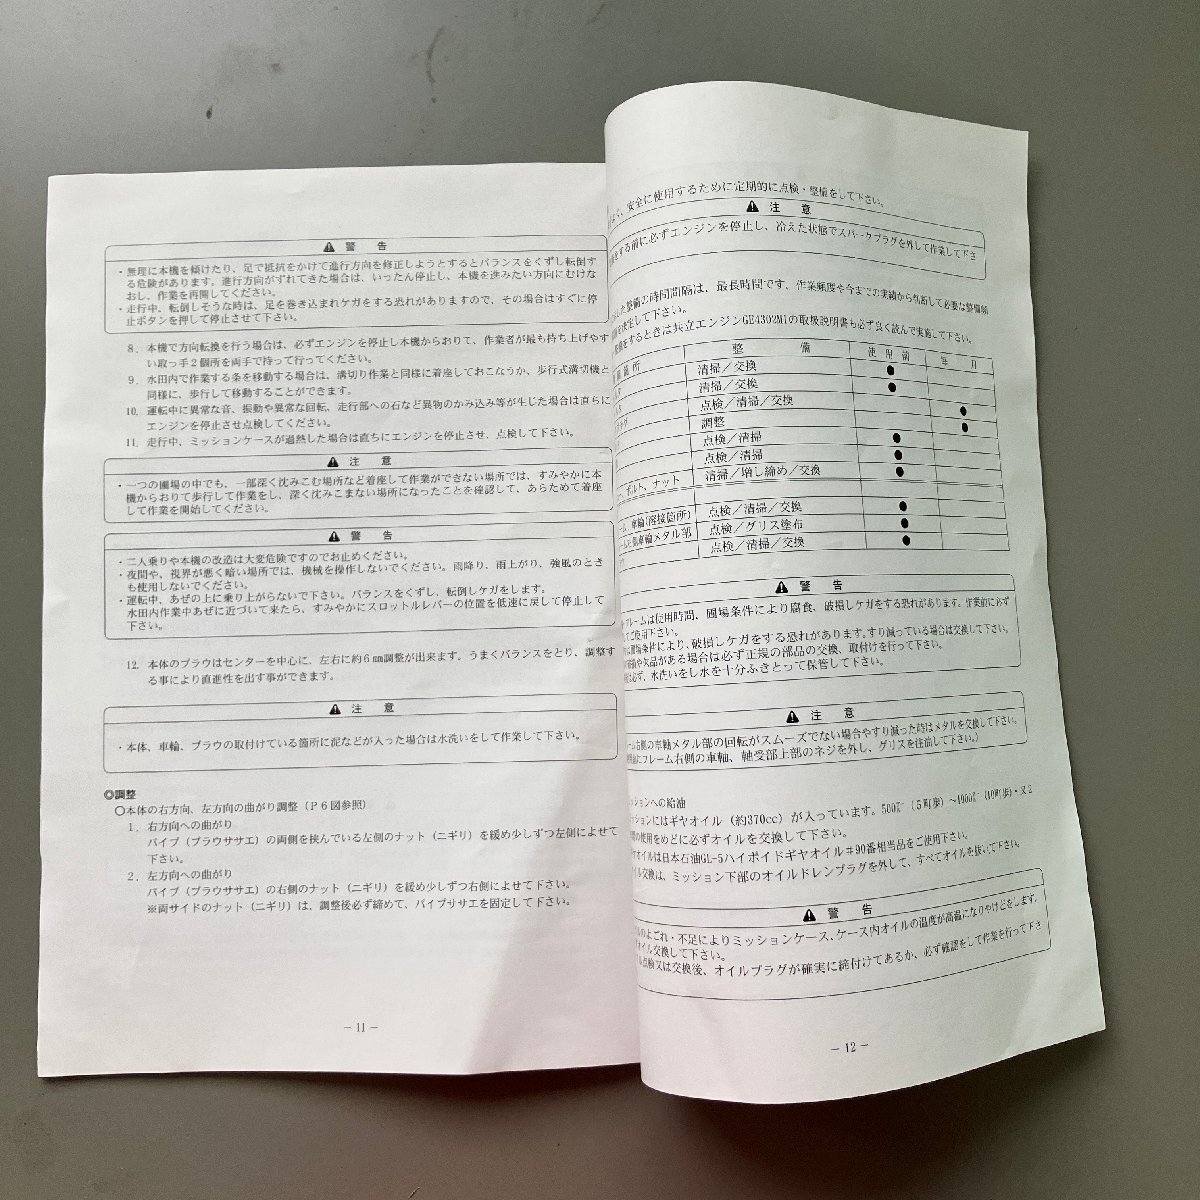 ⚠ 警 告
・無理に本機を傾けたり、足で抵抗をかけて進行方向を修正しようとするとバランスをくずし転倒す
る危険があります。進行方向がずれてきた場合は、いったん停止し、本機を進みたい方向にむけな
おし、作業を再開してください。
・走行中、転倒しそうな時は、足を巻き込まれケガをする恐れがありますので、その場合はすぐに停
止ボタンを押して停止させて下さい。
8．本機で方向転換を行う場合は、必ずエンジンを停止し本機からおりて、作業者が最も持ち上げやす
い取っ手2個所を両手で持って行ってください。
9．水田内で作業する条を移動する場合は、溝切り作業と同様に着座しておこなうか、歩行式溝切機と
同様に、歩行して移動することができます。
10．運転中に異常な音、振動や異常な回転、走行部への石など異物のかみ込み等が生じた場合は直らに
エンジンを停止させ点検してください。
11．走行中、ミッションケースが過熱した場合は直ちにエンジンを停止させ、点検して下さい。
⚠ 注 意
・一つの圃場の中でも、一部深く沈みこむ場所など着座して作業ができない場所では、すみやかに本
機からおりて歩行して作業をし、深く沈みこまない場所になったことを確認して、あらためて着座
して作業を開始してください。
⚠ 警 告
・二人乗りや本機の改造は大変危険ですのでお止めください。
・夜間や、視界が悪く暗い場所では、機械を操作しないでください。雨降り、雨上がり、強風のとき
も使用しないでください。
・運転中、あぜの上に乗り上がらないで下さい。バランスをくずし、転倒しケガをします。
・水田内作業中あぜに近づいて来たら、すみやかにスロットルレバーの位置を低速に戻して停止して
下さい。
12．本体のプラウはセンターを中心に、左右に約6㎜調整が出来ます。うまくバランスをとり、調整す
る事により直進性を出す事ができます。
⚠ 注 意
・本体、車輪、プラウの取付けている箇所に泥などが入った場合は水洗いをして作業して下さい。
◎調整
○本体の右方向、左方向の曲がり調整（P6図参照）
1．右方向への曲がり
パイプ（プラウササエ）の両側を挟んでいる左側のナット（ニギリ）を緩め少しずつ左側によせて
下さい。
2．左方向への曲がり
パイプ（プラウササエ）の右側のナット（ニギリ）を緩め少しずつ右側によせて下さい。
※両サイドのナット（ニギリ）は、調整後必ず締めて、パイプササエを固定して下さい。
－11－
安全に使用するために定期的に点検・整備をして下さい。
⚠ 注 意
をする前に必ずエンジンを停止し、冷えた状態でスパークプラグを外して作業して下さ
整備の時間間隔は、最長時間です、作業頻度や今までの実績から判断して必要な整備頻
を決定して下さい。
整備をするときは共立エンジンGE4302M1の取扱説明書も必ず良く読んで実施して下さい。
箇所 整 備 使用前 毎 月
清掃／交換 ●
清掃／交換 ●
点検／清掃／交換 ●
調整 ●
点検／清掃 ●
点検／清掃 ●
ボルト、ナット 清掃／増し締め／交換 ●
車輪（溶接箇所） 点検／清掃／交換 ●
車輪メタル部 点検／グリス塗布 ●
点検／清掃／交換 ●
⚠ 警 告
フレームは使用時間、圃場条件により腐食、破損しケガをする恐れがあります。作業前に必ず
てご使用下さい。
圃場条件により、破損しケガをする恐れがあります。すり減っている場合は交換して下さい。
や欠品がある場合は必ず正規の部品の交換、取付けを行って下さい。
必ず、水洗いをし水を十分ふきとって保管して下さい。
⚠ 注 意
右側の車軸メタル部の回転がスムーズでない場合やすり減った時はメタルを交換して下さい。
にフレーム右側の車軸、軸受部上部のネジを外し、グリスを注油して下さい。）
ッションへの給油
ッションにはギヤオイル（約370cc）が入っています。500アール（5町歩）～1000アール（10町歩）・又2
の使用をめどに必ずオイルを交換して下さい。
オイルは日本石油GL-5ハイポイドギヤオイル♯90番相当品をご使用下さい。
イル交換は、ミッション下部のオイルドレンプラグを外して、すべてオイルを抜いて下さい。
⚠ 警 告
のよごれ・不足によりミッションケース、ケース内オイルの温度が高温になりやけどをします。
オイル交換して下さい。
点検又は交換後、オイルプラグが確実に締付けてあるか、必ず確認をして作業を行って下さ
－12－